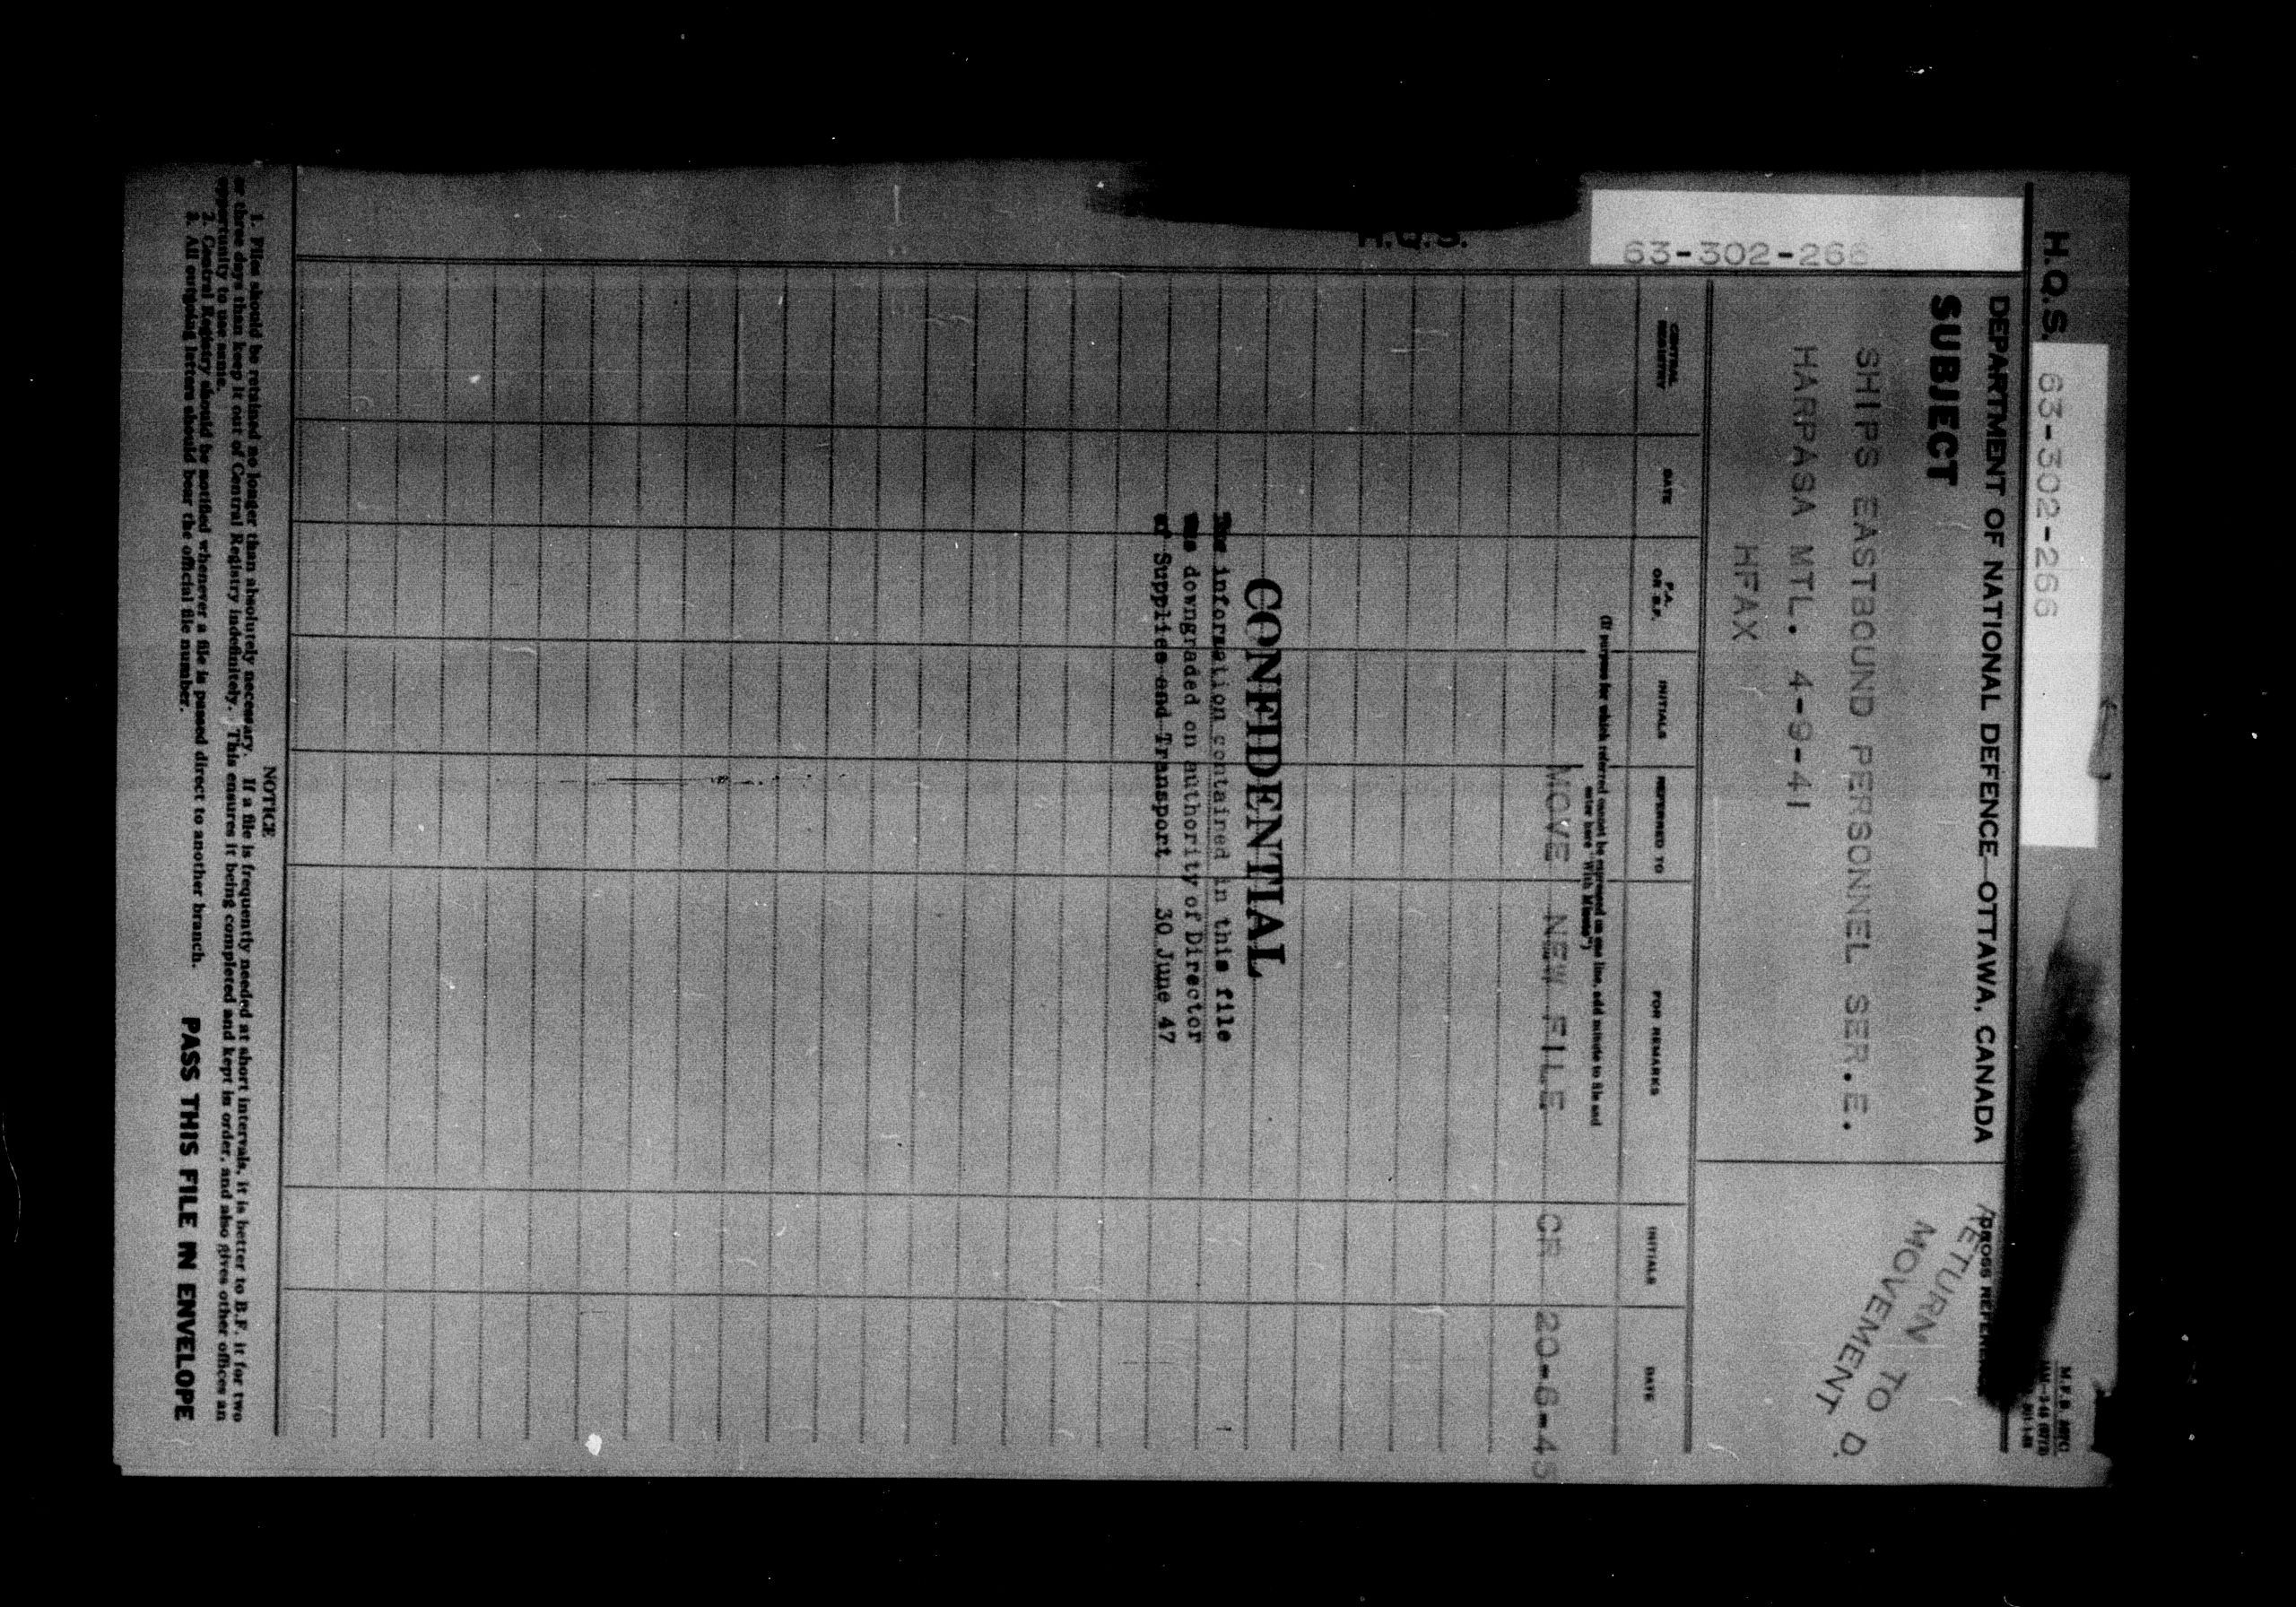 H.Q.S. 63-302-266
DEPARTMENT OF NATIONAL DEFENCE—OTTAWA, CANADA
SUBJECT
SHIPS EASTBOUND PERSONNEL SER.E.
HARPASA MTL. 4-9-41
HFAX
RETURN TO D.
MOVEMENT
63-302-266
H.Q.S.
CENTRAL REGISTRY
DATE
P.A. OR B.F.
INITIALS
REFERRED TO
FOR REMARKS
INITIALS
DATE
(If purpose for which referred cannot be expressed on one line, add minute to file and
enter here "With Minute")
MOVE NEW FILE CR 20-6-45
CONFIDENTIAL
The information contained in this file
was downgraded on authority of Director
of Supplies and Transport 30 June 47
NOTICE
1. Files should be retained no longer than absolutely necessary. If a file is frequently needed at short intervals, it is better to B.F. it for two
or three days than keep it out of Central Registry indefinitely. This ensures it being completed and kept in order, and also gives other offices an
opportunity to use same.
2. Central Registry should be notified whenever a file is passed direct to another branch.
3. All outgoing letters should bear the official file number.
PASS THIS FILE IN ENVELOPE